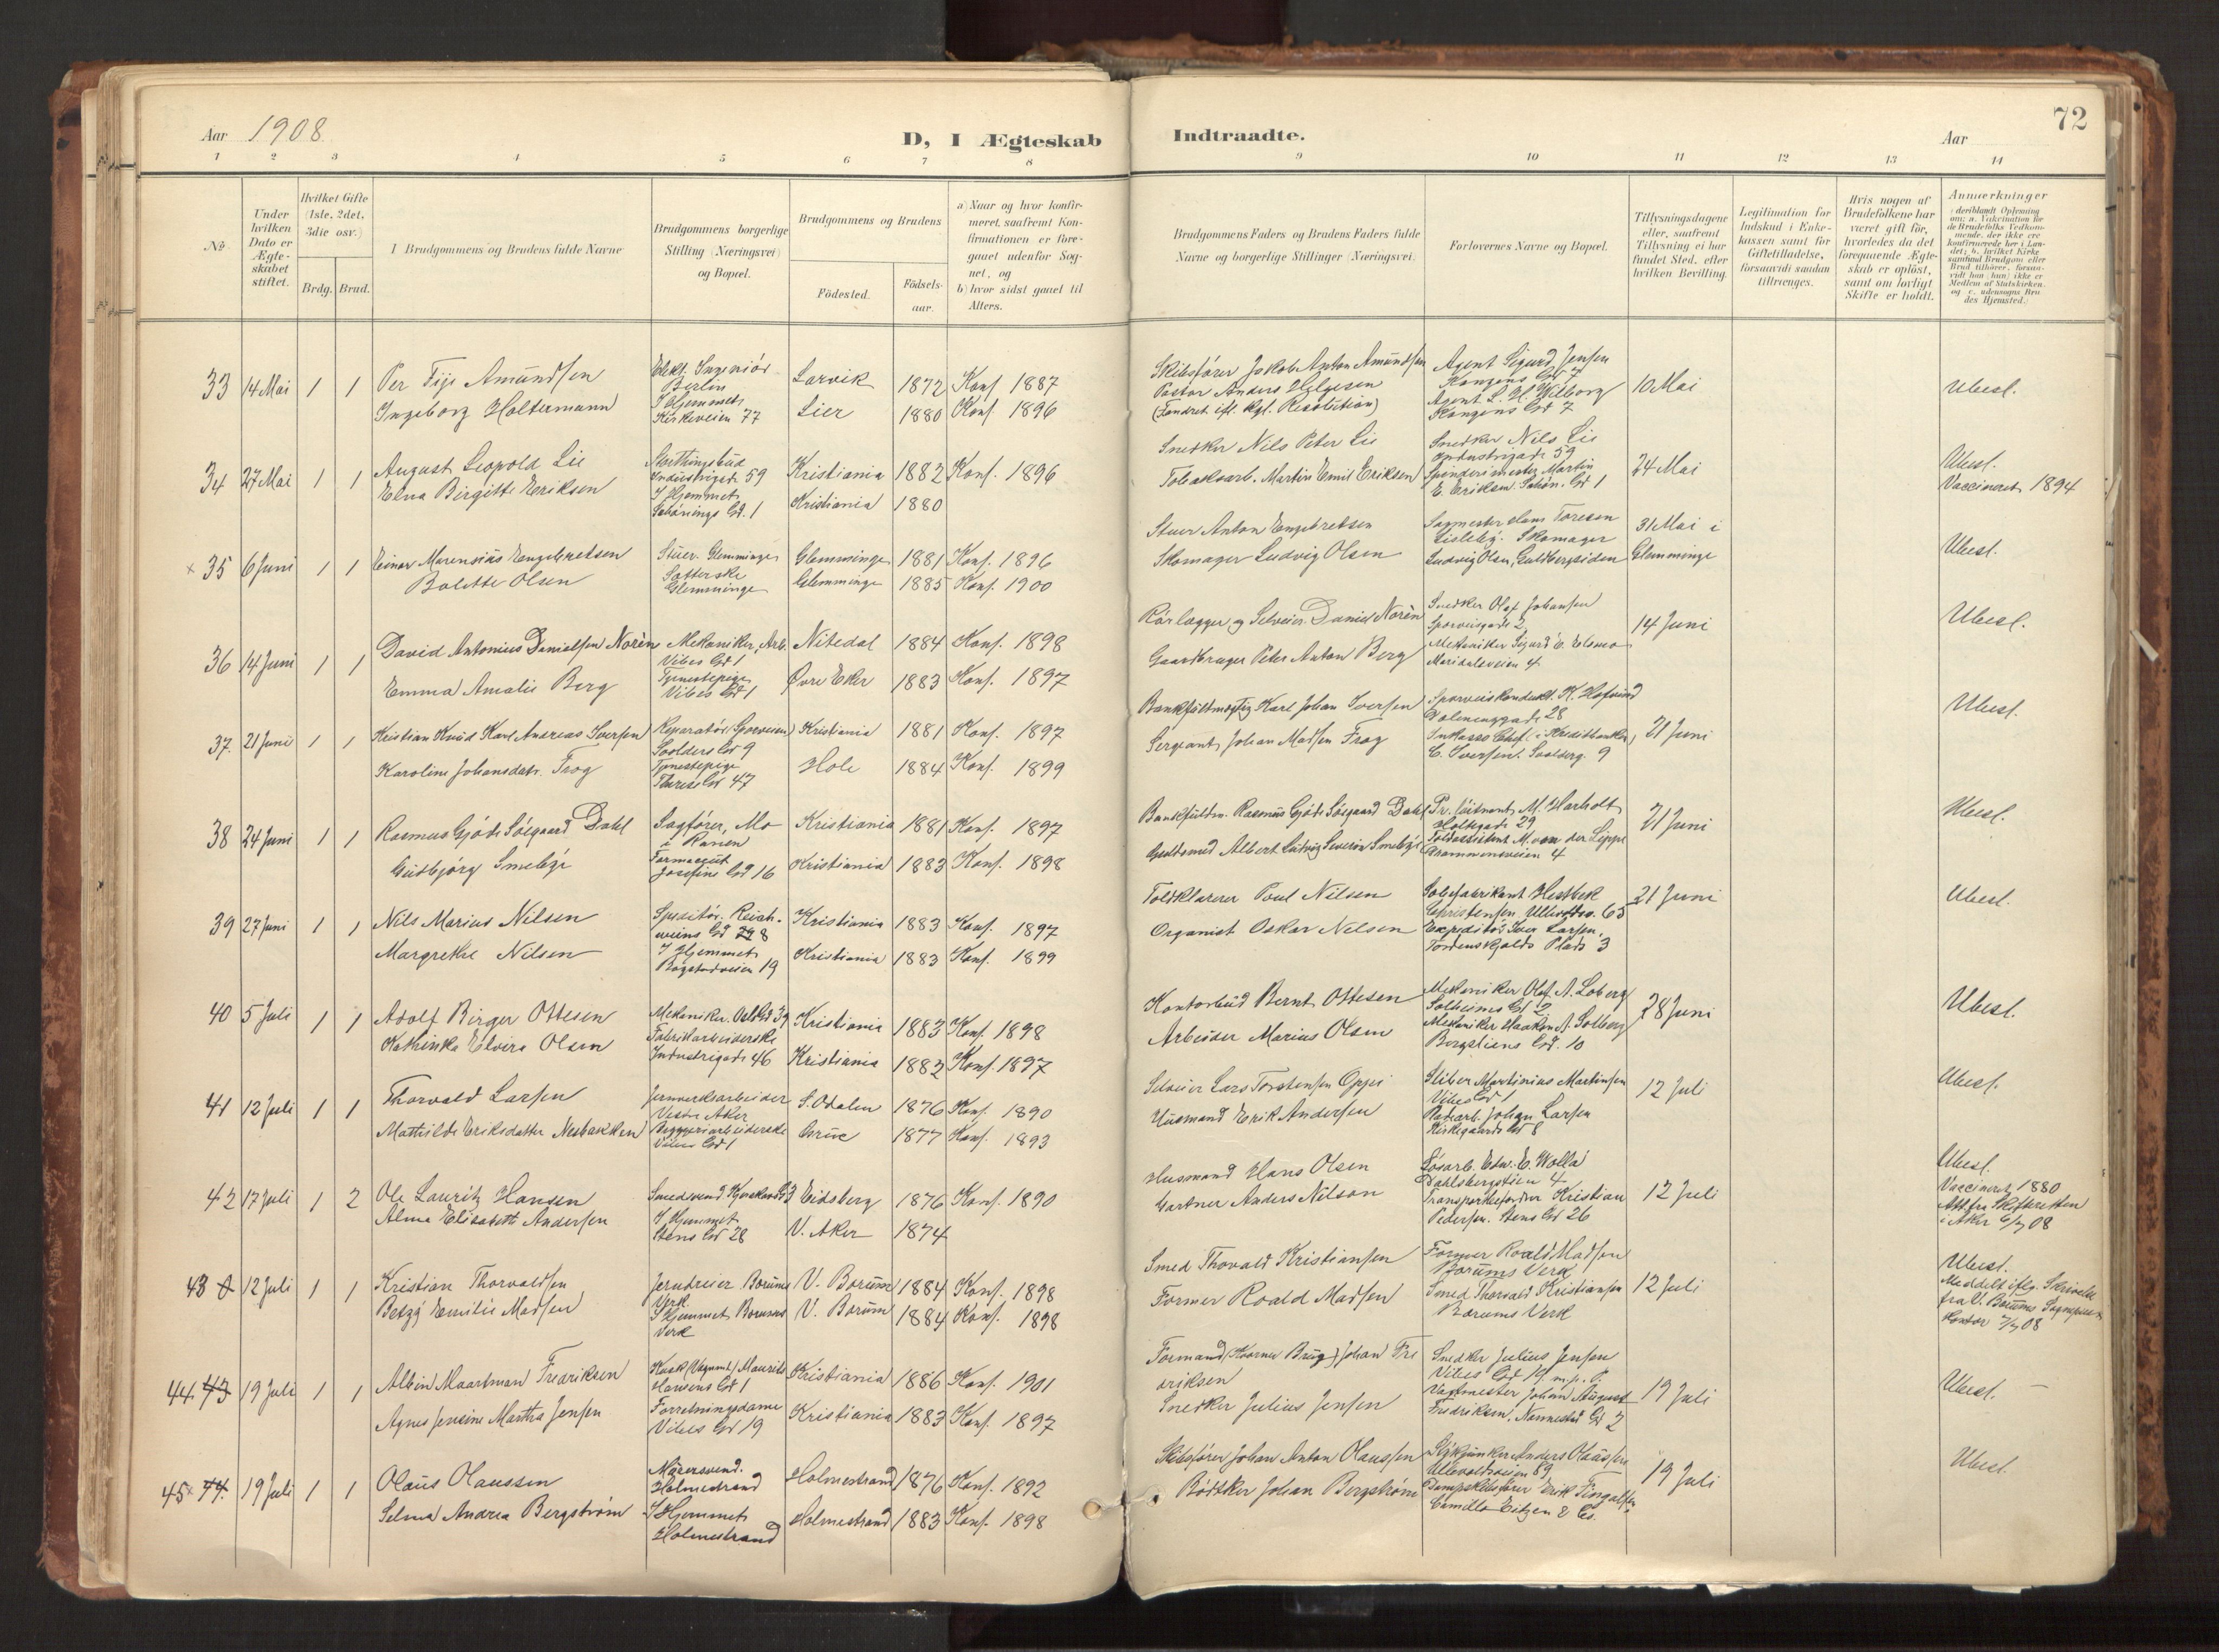 72
Aar 1908.
D, I Ægteskab Indtraadte.
Aar
1 2 3 4 5 6 7 8 9 10 11 12 13 14
No.
Under hvilken Dato er Ægteskabet stiftet.
Hvilket Gifte (1ste, 2det, 3die osv.)
Brdg. Brud.
Brudgommens og Brudens fulde Navne
Brudgommens borgerlige Stilling (Næringsvei) og Bopæl.
Brudgommens og Brudens
Födested.
Födselsaar.
a) Naar og hvor konfirmeret, saafremt Konfirmationen er foregaaet udenfor Sognet, og
b) hvor sidst gaaet til Alters.
Brudgommens Faders og Brudens Faders fulde Navne og borgerlige Stillinger (Næringsvei).
Forlovernes Navne og Bopæl.
Tillysningsdagene eller, saafremt Tillysning ei har fundet Sted, efter hvilken Bevilling.
Legitimation for Indskud i Enkekassen samt for Giftetilladelse, forsaavidt saadan tiltrænges.
Hvis nogen af Brudefolkene har været gift för, hvorledes da det foregaaende Ægteskab er oplöst, samt om lovligt Skifte er holdt.
Anmærkninger
33 14 Mai 1 1
Per Fije Amundsen
Ingeborg Holtermann
Elekt. Ingeniör Berlin
I Hjemmet Kirkeveien 77
Larvik 1872 Konf. 1887
Lier 1880 Konf. 1896
Skibsförer Jakob Anton Amundsen
Pastor Anders Helgesen
(Forandret ifl. Kgl. Resolution)
Agent Sigurd Jensen
Kongens Gd 7
Agent L. H. Wiborg
Kongens Gd 7
10 Mai
Ubesl.
34 27 Mai 1 1
August Leopold Lie
Elna Birgitte Eriksen
Storthingsbud
Industrigade 59
I Hjemmet
Schönings Gd. 1
Kristiania 1882 Konf. 1896
Kristiania 1880
Snedker Nils Peter Lie
Tobaksarb. Martin Emil Eriksen
Snedker Nils Lie
Industrigade 59
Spinderimester Martin
E. Eriksen. Schön. Gd 1
24 Mai
Ubesl.
Vaccineret 1894
× 35 6 Juni 1 1
Einar Marensius Engebretsen
Bolette Olsen
Stuer. Glemminge
Glemminge
Glemminge 1881 Konf. 1896
Glemminge 1885 Konf. 1900
Stuer Anton Engebretsen
Skomager Ludvig Olsen
Sagmester Hans Toresen
Lisleby. Skomager
Ludvig Olsen, Guldbergsiden
31 Mai i Glemminge
Ubesl.
36 14 Juni 1 1
David Antonius Danielsen Norèn
Emma Amalie Berg
Mekaniker, Arb.
Vibes Gd 1
Tjenestepige
Vibes Gd 1
Nitedal 1884 Konf. 1898
Övre Eker 1883 Konf. 1897
Rörlægger og Selveier Daniel Norèn
Gaardbruger Peter Anton Berg
Snedker Olaf Johansen
Sporveisgade 2
Maridalsveien 4
14 Juni
Ubesl.
37. 21 Juni 1 1
Kristian Knud Karl Andreas Iversen
Karoline Johansdatr. Frog
Reparatör (Sporveien)
Tjenestepige
Therese Gd 47
Kristiania 1881 Konf. 1897
Hole 1884 Konf. 1899
Bankfuldmægtig Karl Johan Iversen
Sergeant Johan Madsen Frog
21 Juni
Ubesl.
38 24 Juni 1 1
Rasmus Gjöde Söegaard Dahl
Gudbjörg Smebÿe
Sagförer, Mo
i Ranen
Farmaceut
Josefine Gd 16
Kristiania 1881 Konf. 1897
Kristiania 1883 Konf. 1898
Bankfuldm. Rasmus Gjöde Söegaard Dahl
Guldsmed Albert Ludvig Severin Smebÿe
Pr. löitnant M. Harholt
Holtegade 29
Toldassistent M. von der Lippe
Drammensveien 4
21 Juni
Ubesl.
39 27 Juni 1 1
Nils Marius Nilsen
Margrethe Nilsen
I Hjemmet
Bogstadveien 19
Kristiania 1883 Konf. 1897
Kristiania 1883 Konf. 1899
Toldklarerer Poul Nilsen
Organist Oskar Nilsen
Christensen, Ullevoldsv. 65
Expeditör Iver Larsen,
Tordenskjolds Plads 3
21 Juni
Ubesl.
40 5 Juli 1 1
Adolf Birger Ottesen
Kathinka Elvira Olsen
Fabrikarbeiderske
Industrigade 46
Kristiania 1883 Konf. 1898
Kristiania 1882 Konf. 1897
Kontorbud Bernt Ottesen
Arbeider Marius Olsen
Mekaniker Olaf A. Loberg
Solheims Gd 2
Mekaniker Haaken A. Solberg
Bergsliens Gd. 10
28 Juni
Ubesl.
41 12 Juli 1 1
Thorvald Larsen
Mathilde Eriksdatter Nesbakken
Jernverksarbeider
Vestre Aker
Bryggeriarbeiderske
Vibes Gd 1
S. Odalen 1876 Konf. 1890
Grue 1877 Konf. 1893
Selveier Lars Torstensen Oppi
Husmand Erik Andersen
Sliber Martinius Martinsen
Vibes Gd 1
Johan Larsen
Kirkegaards Gd 8
12 Juli
Ubesl.
42 17 Juli 1 2
Ole Lauritz Hansen
Alma Elisabeth Andersen
I Hjemmet
Stens Gd 28
Eidsberg 1876 Konf. 1890
V. Aker 1874
Husmand Hans Olsen
Gartner Anders Nilson
Lösarb. Edw. E. Wolla
Dahlsbergstien 4
Transportbefordrer Kristian
Pedersen. Stens Gd 26
12 Juli
Ubesl.
Vaccineret 1880
Att. fra Skifteretten
i Aker 6/7 08
43 12 Juli 1 1
Kristian Thorvaldsen
Betzÿ Emilie Madsen
Jerndreier Bærums
Verk
I Hjemmet Bærums
Verk
V. Bærum 1884 Konf. 1898
V. Bærum 1884 Konf. 1898
Smed Thorvald Kristiansen
Former Roald Madsen
Former Roald Madsen
Bærums Verk
Smed Thorvald Kristiansen
Bærums Verk
12 Juli
Ubesl.
Meddelt iflg. Skrivelse
fra V. Bærums Sognepræst
Kontor 7/7 08
44 43 19 Juli 1 1
Albin Maartman Fredriksen
Agnes Jensine Martha Jensen
Kusk (Vognmd) Mauritz
Hansens Gd 1
Forretningsdame
Vibes Gd 19
Kristiania 1886 Konf. 1901
Kristiania 1883 Konf. 1897
Formand (Hovmer Brug) Johan Fredriksen
Snedker Julius Jensen
Snedker Julius Jensen
Vibes Gd 19
Vagtmester Johan August
Fredriksen, Nannestad Gd 2
19 Juli
Ubesl. —
45 × 44. 19 Juli 1 1
Olaus Olaussen
Selma Andrea Bergström
Murersvend.
Holmestrand
I Hjemmet
Holmestrand
Holmestrand 1876 Konf. 1892
Holmestrand 1883 Konf. 1898
Skibsförer Johan Anton Olaussen
Bödker Johan Bergström
Anders Olaussen
Ullevoldsveien 89
Dampskibsförer Erik Fingalsen
Camillo Eitzen & Co.
19 Juli
Ubesl.